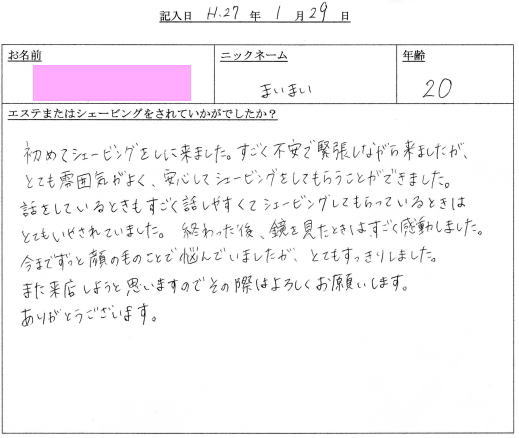 記入日 H.27 年 1 月 29 日
お名前 ニックネーム 年齢
まいまい 20
エステまたはシェービングをされていかがでしたか？
初めてシェービングをしに来ました。すごく不安で緊張しながら来ましたが、
とても雰囲気がよく、安心してシェービングをしてもらうことができました。
話をしているときもすごく話しやすくてシェービングしてもらっているときは
とてもいやされていました。 終わった後、鏡を見たときはすごく感動しました。
今までずっと顔の毛のことで悩んでいましたが、とてもすっきりしました。
また来店しようと思いますのでその際はよろしくお願いします。
ありがとうございます。